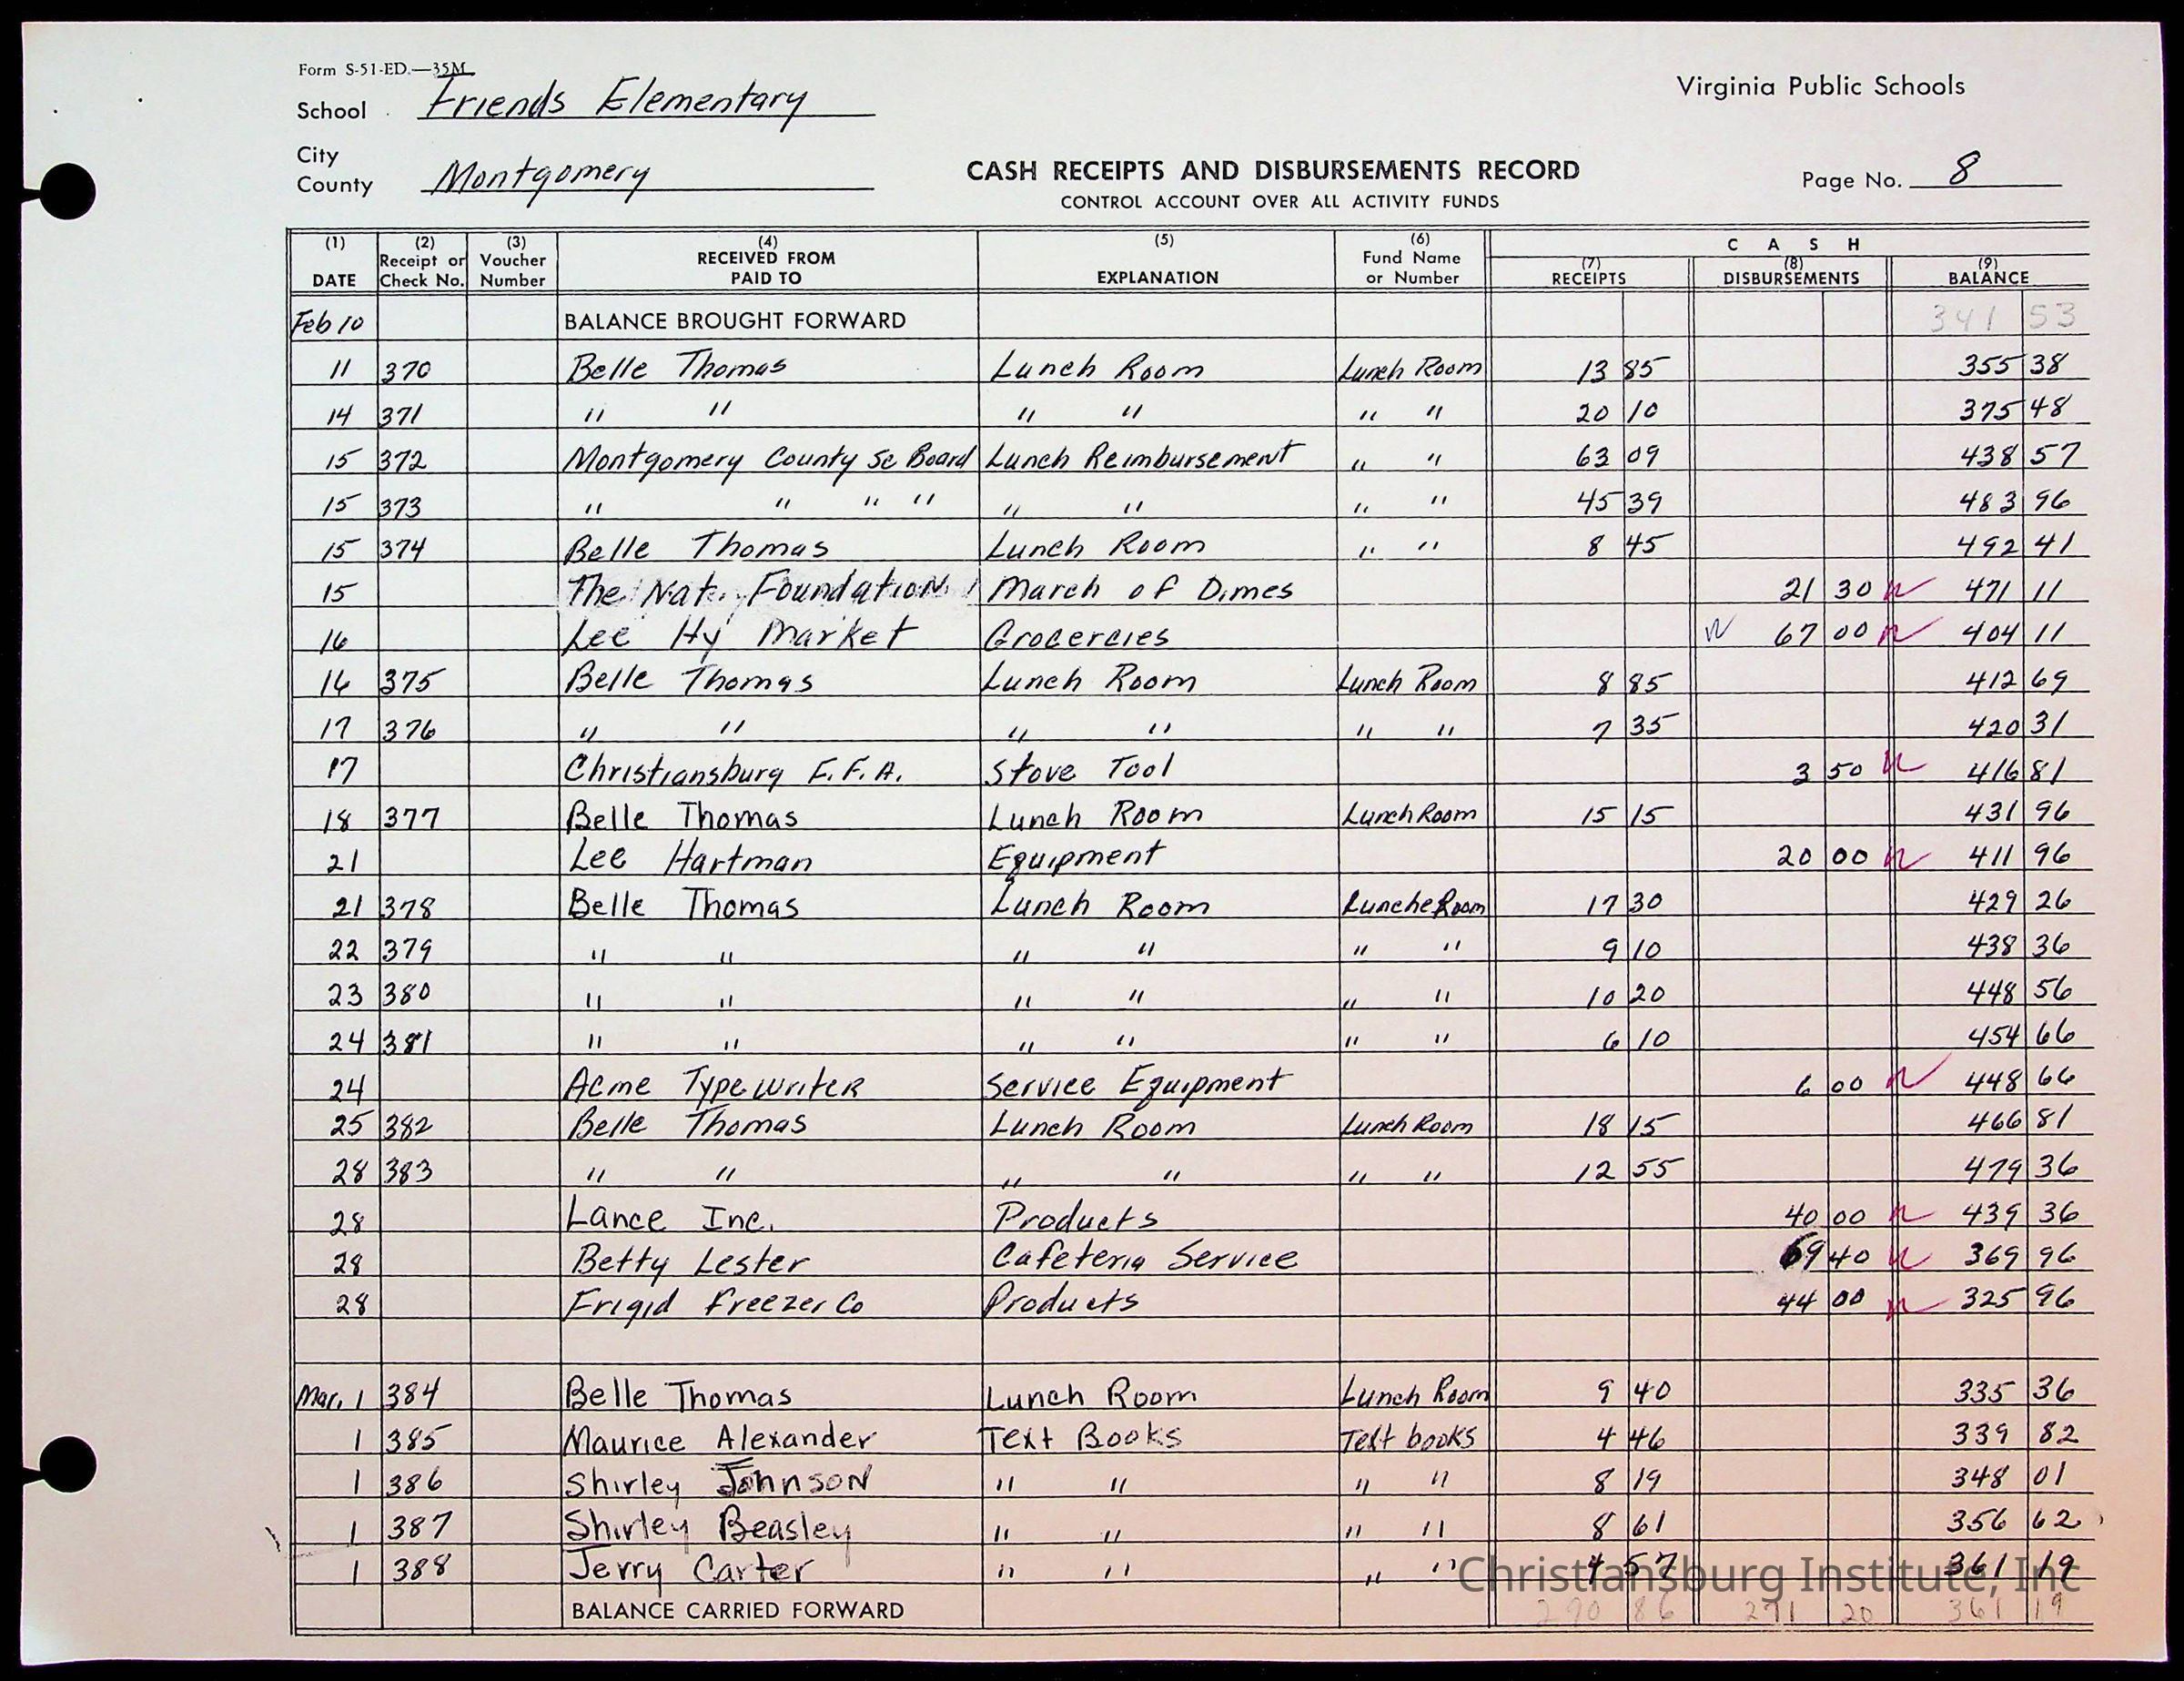 Form S-51-ED.—35M
Virginia Public Schools
School Friends Elementary
City
County Montgomery
CASH RECEIPTS AND DISBURSEMENTS RECORD
CONTROL ACCOUNT OVER ALL ACTIVITY FUNDS
Page No. 8
(1) (2) (3) (4) (5) (6) C A S H
DATE Receipt or Check No. Voucher Number RECEIVED FROM PAID TO EXPLANATION Fund Name or Number (7) RECEIPTS (8) DISBURSEMENTS (9) BALANCE
Feb 10 BALANCE BROUGHT FORWARD 341 53
11 370 Belle Thomas Lunch Room Lunch Room 13 85 355 38
14 371 " " " " " " 20 10 375 48
15 372 Montgomery County Sc Board Lunch Reimbursement " " 63 09 438 57
15 373 " " " " " " " " 45 39 483 96
15 374 Belle Thomas Lunch Room " " 8 45 492 41
15 The Nat. Foundation March of Dimes 21 30 471 11
16 Lee Hy Market Grocercies 67 00 404 11
16 375 Belle Thomas Lunch Room Lunch Room 8 85 412 69
17 376 " " " " " " 7 35 420 31
17 Christiansburg F.F.A. Stove Tool 3 50 416 81
18 377 Belle Thomas Lunch Room Lunch Room 15 15 431 96
21 Lee Hartman Equipment 20 00 411 96
21 378 Belle Thomas Lunch Room Lunche Room 17 30 429 26
22 379 " " " " " " 9 10 438 36
23 380 " " " " " " 10 20 448 56
24 381 " " " " " " 6 10 454 66
24 Acme Typewriter Service Equipment 6 00 448 66
25 382 Belle Thomas Lunch Room Lunch Room 18 15 466 81
28 383 " " " " " " 12 55 479 36
28 Lance Inc. Products 40 00 439 36
28 Betty Lester Cafeteria Service 69 40 369 96
28 Frigid Freezer Co Products 44 00 325 96
Mar. 1 384 Belle Thomas Lunch Room Lunch Room 9 40 335 36
1 385 Maurice Alexander Text Books Text books 4 46 339 82
1 386 Shirley Johnson " " " " 8 19 348 01
1 387 Shirley Beasley " " " " 8 61 356 62
1 388 Jerry Carter " " " " 4 57 361 19
Christiansburg Institute, Inc
BALANCE CARRIED FORWARD 290 86 271 20 361 19